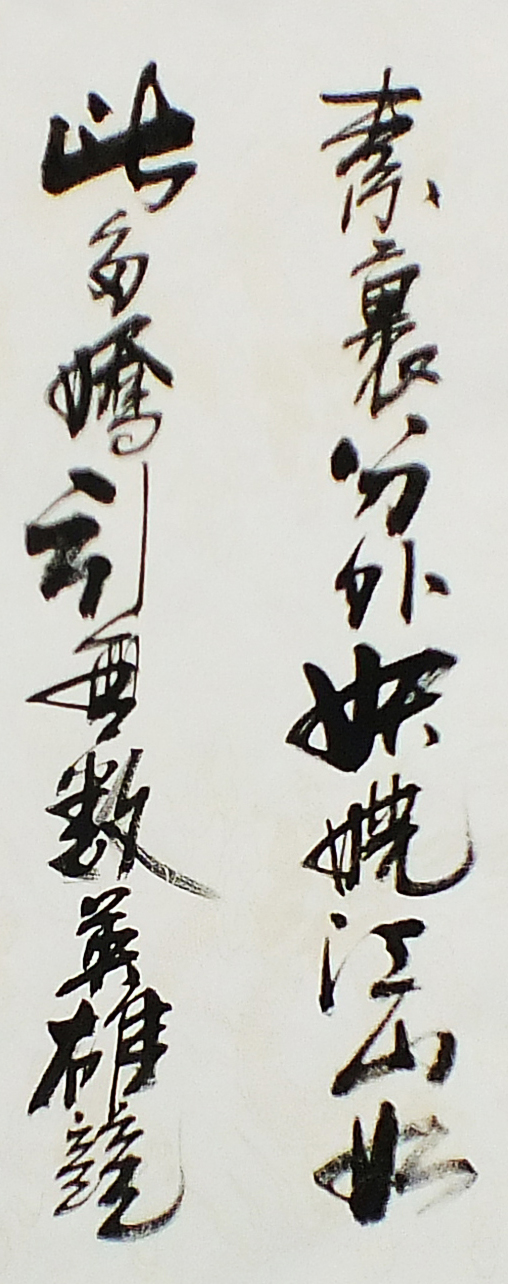 素裹分外妖嬈江山如
此多嬌引無數英雄競